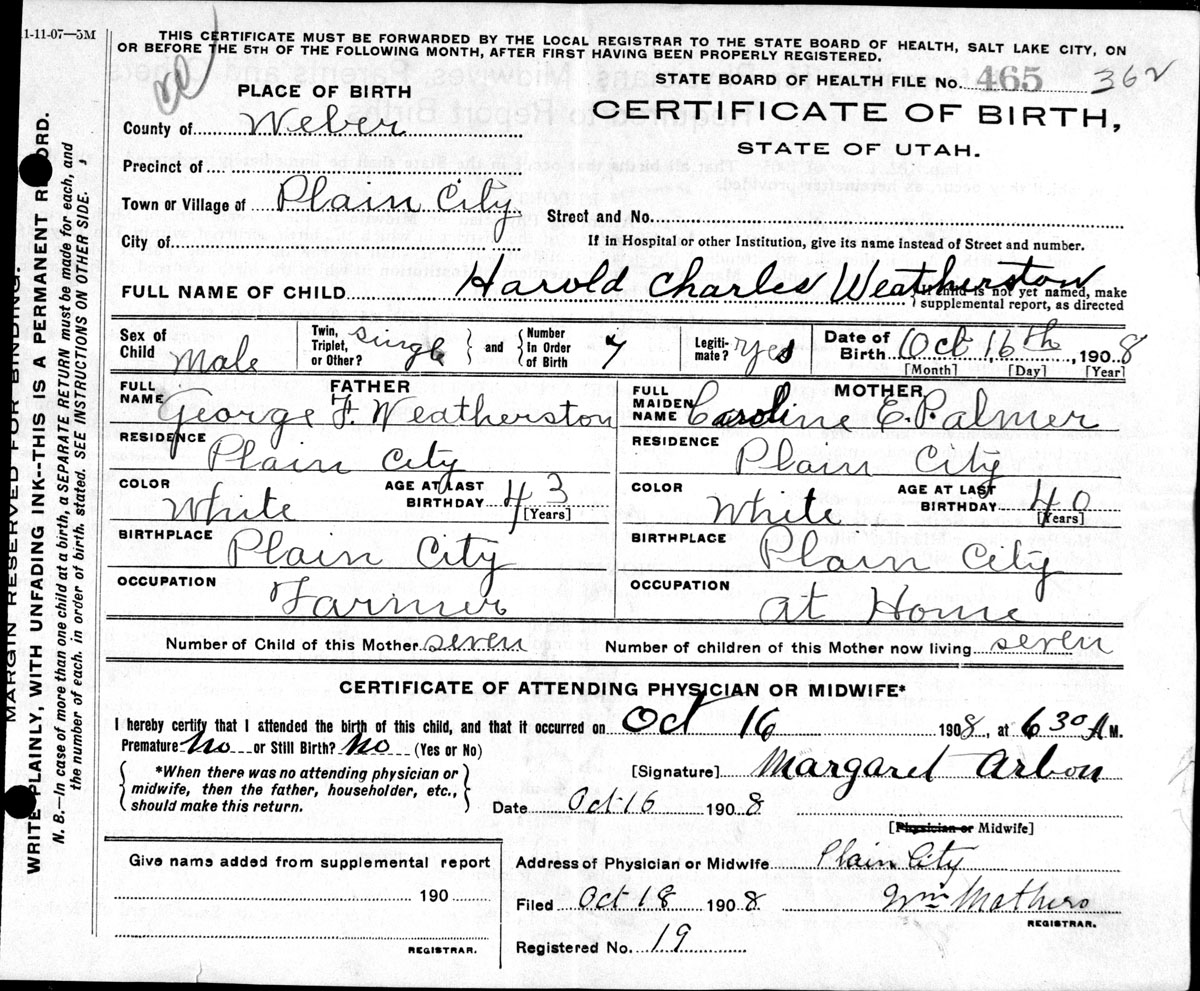 11-11-07—5M
THIS CERTIFICATE MUST BE FORWARDED BY THE LOCAL REGISTRAR TO THE STATE BOARD OF HEALTH, SALT LAKE CITY, ON
OR BEFORE THE 5TH OF THE FOLLOWING MONTH, AFTER FIRST HAVING BEEN PROPERLY REGISTERED.
STATE BOARD OF HEALTH FILE No. 465 362
PLACE OF BIRTH
CERTIFICATE OF BIRTH,
STATE OF UTAH.
County of Weber
Precinct of
Town or Village of Plain City
Street and No.
City of
If in Hospital or other Institution, give its name instead of Street and number.
FULL NAME OF CHILD Harold Charles Weatherston
is not yet named, make
supplemental report, as directed
Sex of Child Male
Twin, Triplet, or Other? single
and Number In Order of Birth 7
Legiti-mate? Yes
Date of Birth Oct 16th, 1908
[Month] [Day] [Year]
FATHER
FULL NAME George F. Weatherston
RESIDENCE Plain City
COLOR White
AGE AT LAST BIRTHDAY 43 [Years]
BIRTHPLACE Plain City
OCCUPATION Farmer
MOTHER
FULL MAIDEN NAME Caroline E. Palmer
RESIDENCE Plain City
COLOR White
AGE AT LAST BIRTHDAY 40 [Years]
BIRTHPLACE Plain City
OCCUPATION at Home
Number of Child of this Mother seven
Number of children of this Mother now living seven
CERTIFICATE OF ATTENDING PHYSICIAN OR MIDWIFE*
I hereby certify that I attended the birth of this child, and that it occurred on Oct 16 1908, at 6 30 A M.
Premature No or Still Birth? No (Yes or No)
*When there was no attending physician or
midwife, then the father, householder, etc.,
should make this return.
[Signature] Margaret Arbon
Date Oct 16 1908
[Physician or Midwife]
Give name added from supplemental report
190
REGISTRAR.
Address of Physician or Midwife Plain City
Filed Oct 18 1908
Wm Mathers
REGISTRAR.
Registered No. 19
MARGIN RESERVED FOR BINDING.
WRITE PLAINLY, WITH UNFADING INK--THIS IS A PERMANENT RECORD.
N. B.—In case of more than one child at a birth, a SEPARATE RETURN must be made for each, and
the number of each, in order of birth, stated. SEE INSTRUCTIONS ON OTHER SIDE.